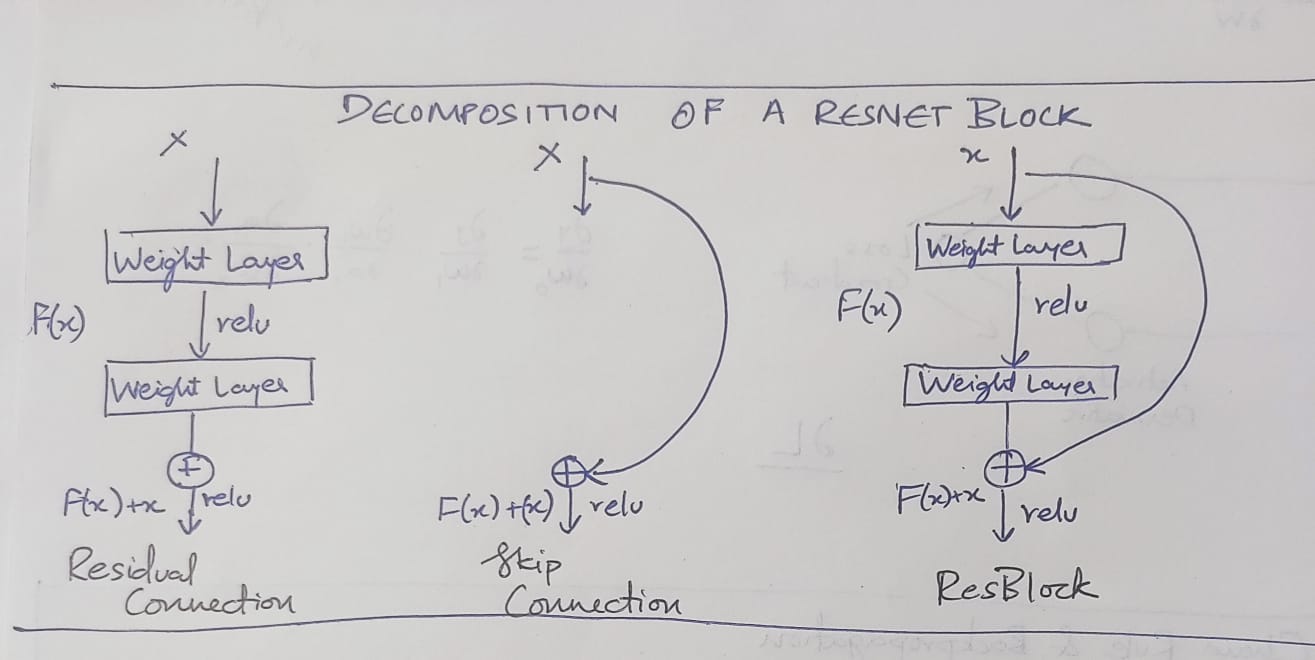 DECOMPOSITION OF A RESNET BLOCK
X
Weight Layer
F(x)
relu
Weight Layer
+
F(x)+x
relu
Residual
Connection
X
+
F(x)+(x)
relu
Skip
Connection
x
Weight Layer
F(x)
relu
Weight Layer
+
F(x)+x
relu
ResBlock